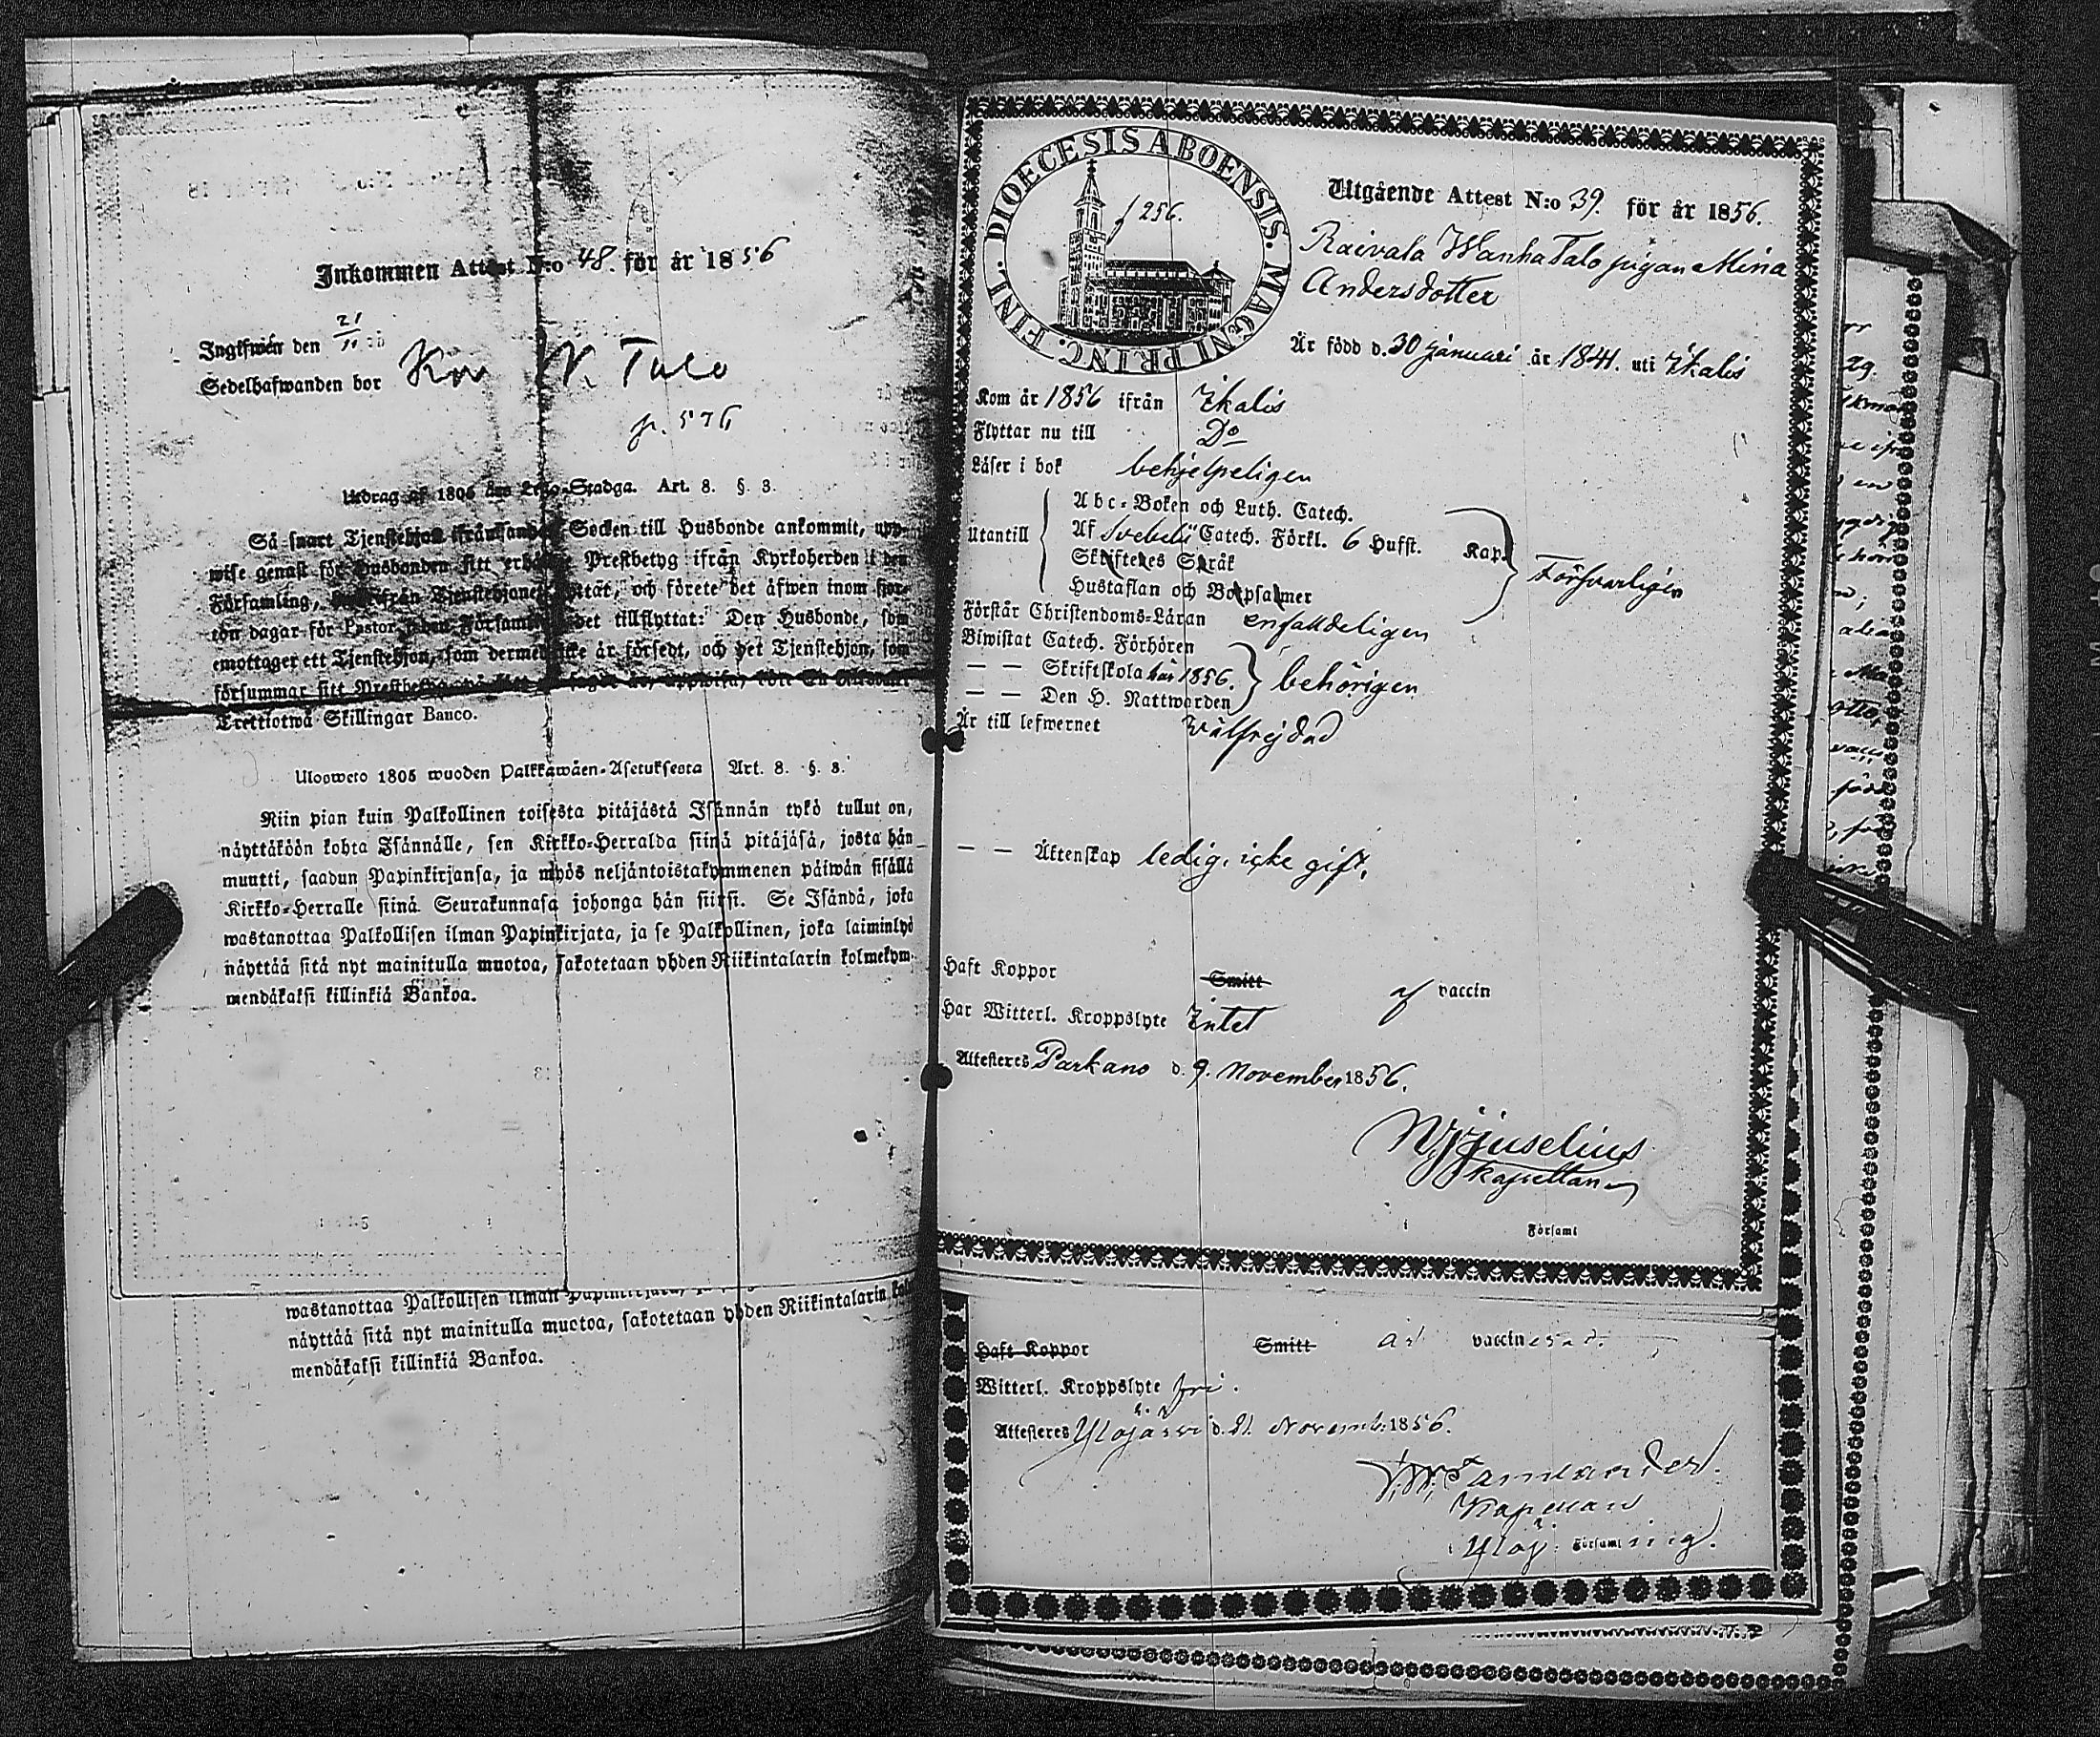 Inkommen Attest N:o 48. för år 1856
Ingifwen den 21/11
Sedelhafwanden bor Talo
p. 576
Utdrag af 1805 års Lego-Stadga. Art. 8. §. 3.
Så snart Tjenstehjon ifrån Socken till Husbonde ankommit, upp-
wise genast för Husbonden sitt Prestbetyg ifrån Kyrkoherden i den
Församling, och förete det äfwen inom fjor-
ton dagar för Pastor det tillflyttat: Den Husbonde, som
emottager ett Tjenstehjon, som dermed icke är försedt, och det Tjenstehjon, som
försummar sitt
Trettiotwå Skillingar Banco.
Ulosweto 1805 wuoden Palkkawäen-Asetuksesta Art. 8. §. 3.
Niin pian kuin Palkollinen toisesta pitäjästä Isännän tykö tullut on,
näyttäköön kohta Isännälle, sen Kirkko-Herralda siinä pitäjäsä, josta hän
muutti, saadun Papinkirjansa, ja myös neljäntoistakymmenen päiwän sisällä
Kirkko-Herralle siinä Seurakunnasa johonga hän siirsi. Se Isändä, joka
wastanottaa Palkollisen ilman Papinkirjata, ja se Palkollinen, joka laiminlyö
näyttää sitä nyt mainitulla muotoa, sakotetaan yhden Riikintalarin kolmekym-
mendäkaksi killinkiä Bankoa.
wastanottaa Palkollisen ilman
näyttää sitä nyt mainitulla muotoa, sakotetaan yhden Riikintalarin
mendäkaksi killinkiä Bankoa.
DIOECESIS ABOENSIS. MAGNI PRINC. FINL.
256.
Utgående Attest N:o 39. för år 1856.
Raivala Wanha Talo pigan Mina
Andersdotter
Är född d. 30 januari år 1841. uti Ikalis
Kom år 1856 ifrån Ikalis
Flyttar nu till Do
Läser i bok behjelpeligen
Utantill
Abc-Boken och Luth. Catech.
Af Svebelii Catech. Förkl. 6 Hufst. Kap.
Skriftenes Språk
Hustaflan och Botpsalmer
Försvarligen
Förstår Christendoms-Läran enfaldeligen
Biwistat Catech. Förhören
— — Skriftskola här 1856. behörigen
— — Den H. Nattwarden
Är till lefwernet wälfrejdad
— — Äktenskap ledig, icke gift.
Haft Koppor Smitt af vaccin
Har Witterl. Kroppslyte Intet
Attesteres Parkano d. 9. November 1856.
Juselius
Kapellan
Församl
Haft Koppor Smitt är vaccinerad.
Witterl. Kroppslyte fri.
Attesteres Ylöjärvi d. 21. Novemb. 1856.
Kapellan
Ylöj. Församling.